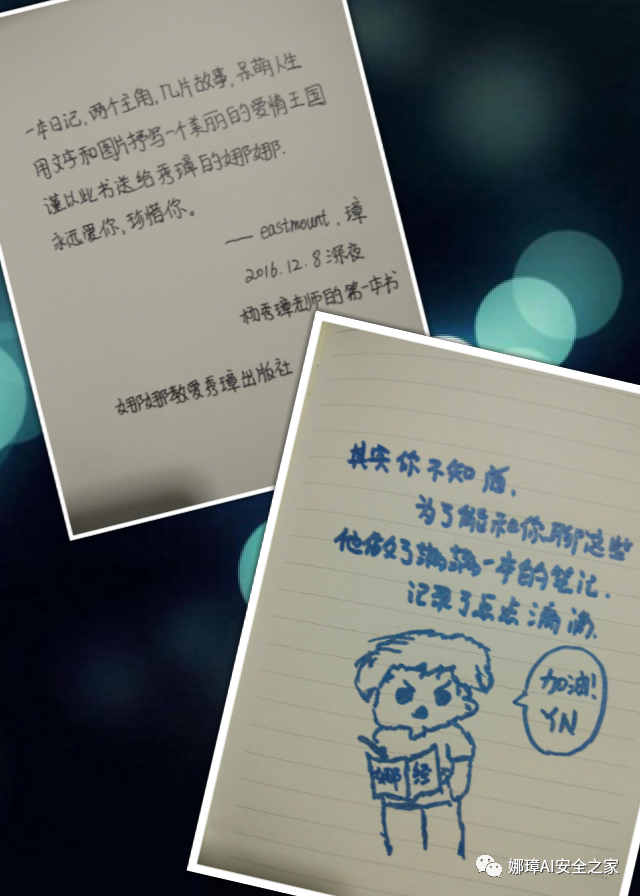 一本日记,两个主角,几片故事,呆萌人生
用文字和图片抒写一个美丽的爱情王国
谨以此书送给秀璋的娜娜.
永远爱你,珍惜你。
—— eastmount.璋
2016.12.8 深夜
杨秀璋老师的第一本书
娜娜教爱秀璋出版社
其实你不知道,
为了能和你聊这些
他做了满满一本的笔记.
记录了点点滴滴.
加油!
YN
娜 经
娜璋AI安全之家